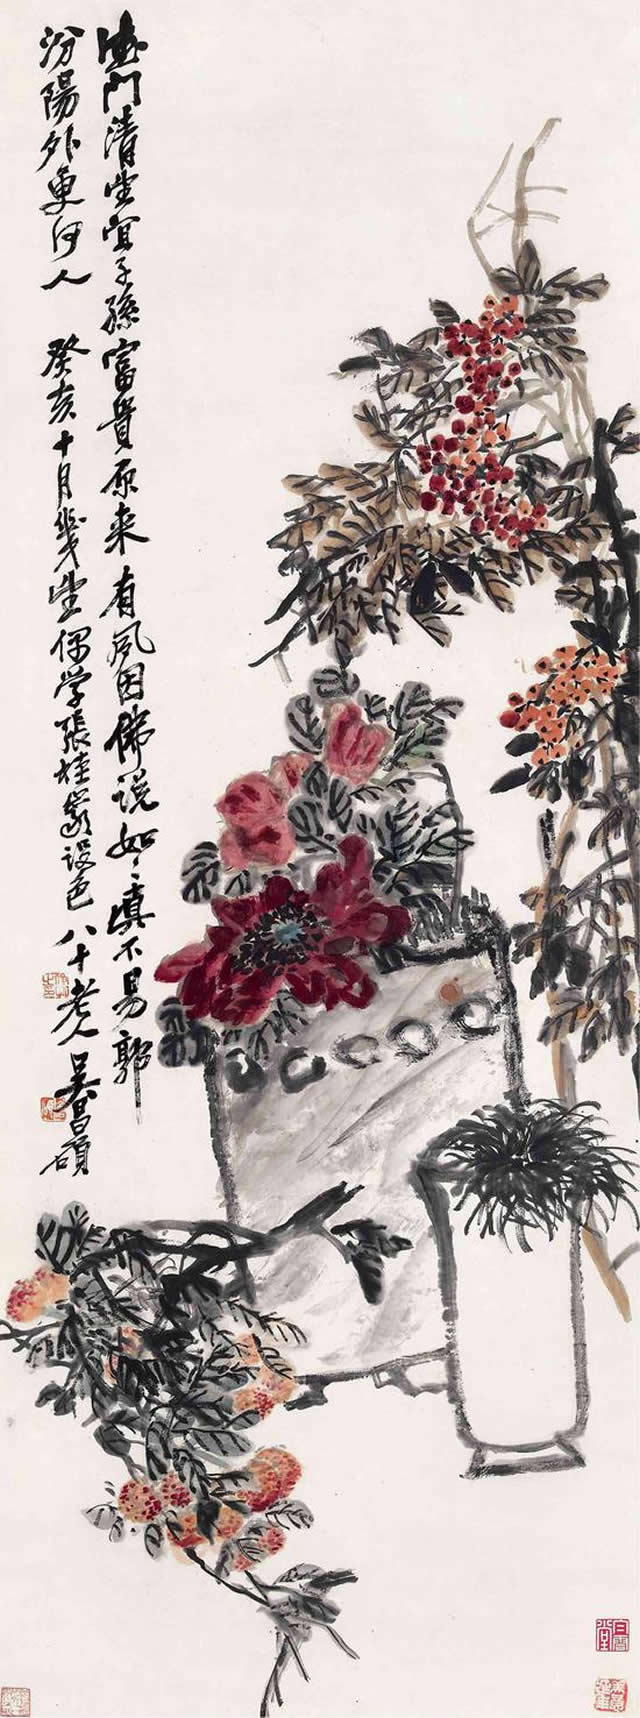 德門清望宜子孫富貴原来有夙因佛說如〻真不易郭
汾陽外更何人 癸亥十月幾望偶学張桂巖設色 八十老人吴昌碩